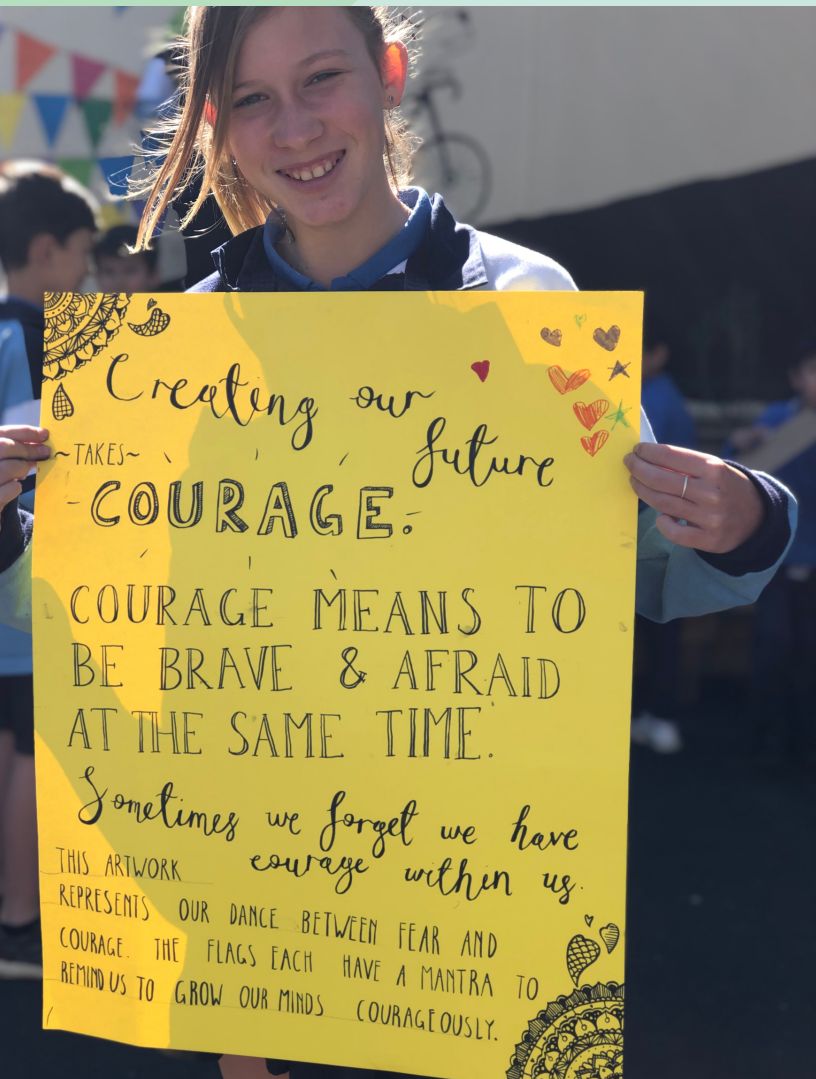 Creating our
future
~TAKES~
COURAGE.
COURAGE MEANS TO
BE BRAVE & AFRAID
AT THE SAME TIME.
Sometimes we forget we have
courage within us.
THIS ARTWORK
REPRESENTS OUR DANCE BETWEEN FEAR AND
COURAGE. THE FLAGS EACH HAVE A MANTRA TO
REMIND US TO GROW OUR MINDS COURAGEOUSLY.